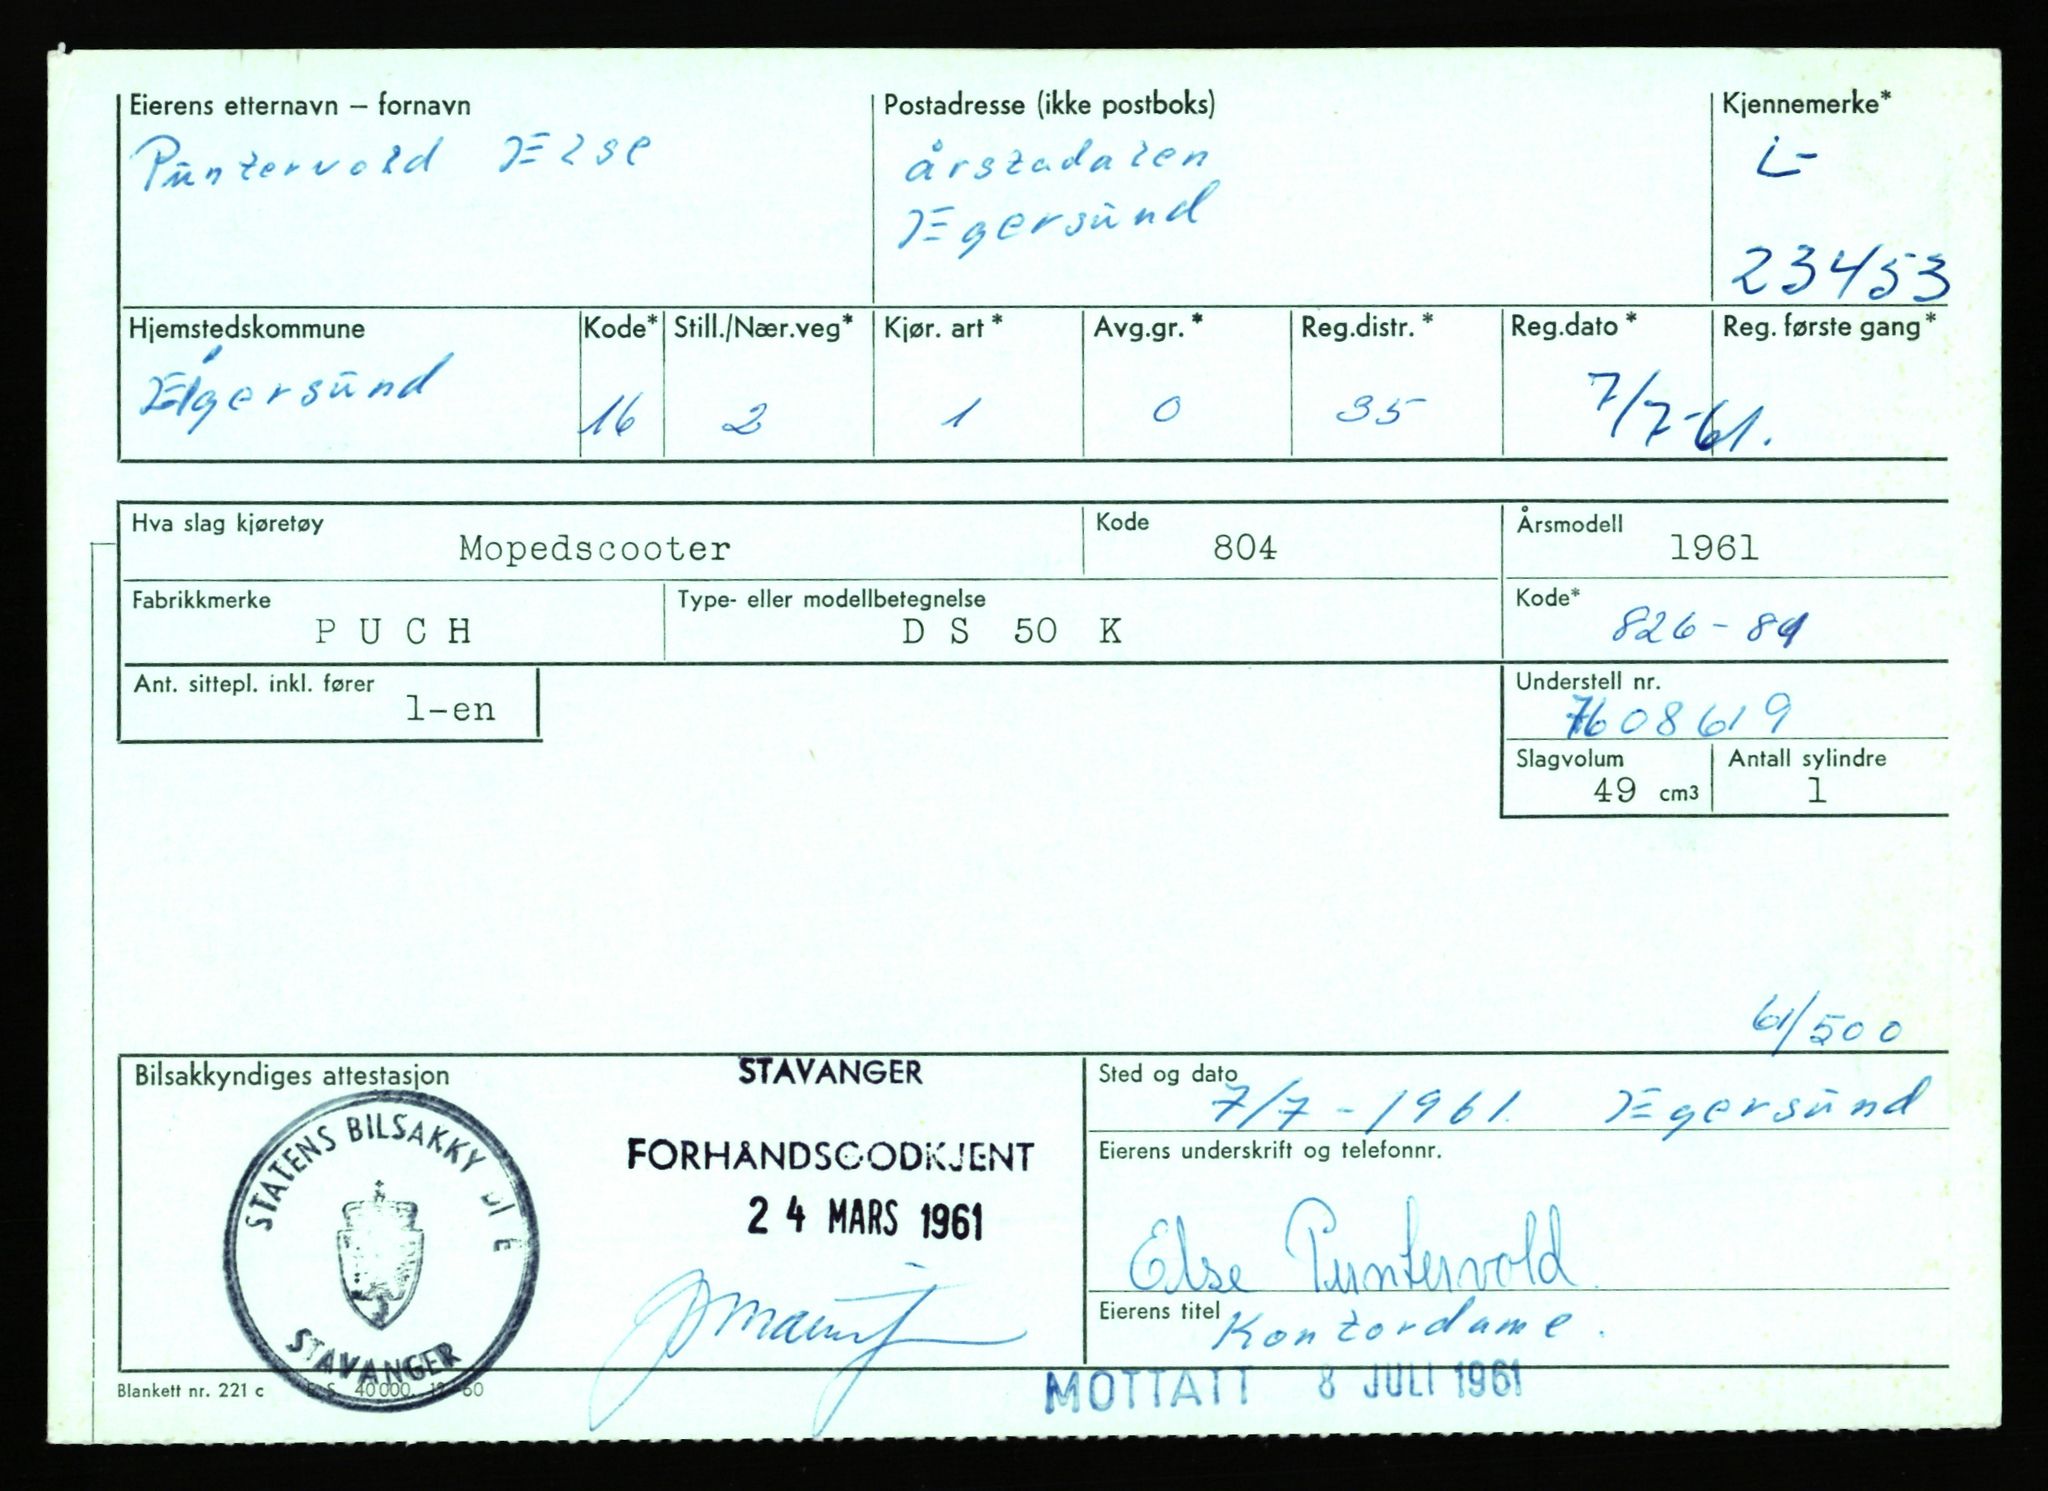 Eierens etternavn – fornavn
Puntervold Else
Postadresse (ikke postboks)
Årstadalen
Egersund
Kjennemerke*
L-
23453
Hjemstedskommune
Egersund
Kode*
16
Still./Nær.veg*
2
Kjør. art *
1
Avg.gr. *
0
Reg.distr. *
35
Reg.dato *
7/7-61.
Reg. første gang *
Hva slag kjøretøy
Mopedscooter
Kode
804
Årsmodell
1961
Fabrikkmerke
PUCH
Type- eller modellbetegnelse
DS 50 K
Kode*
826-81
Ant. sittepl. inkl. fører
1-en
Understell nr.
7608619
Slagvolum
49 cm3
Antall sylindre
1
61/500
Bilsakkyndiges attestasjon
STATENS BILSAKKYNDIGE
STAVANGER
STAVANGER
FORHÅNDSGODKJENT
24 MARS 1961
Sted og dato
7/7-1961. Egersund
Eierens underskrift og telefonnr.
Else Puntervold
Eierens titel
Kontordame.
MOTTATT 8 JULI 1961
Blankett nr. 221 c E. S. 40 000. 12-60